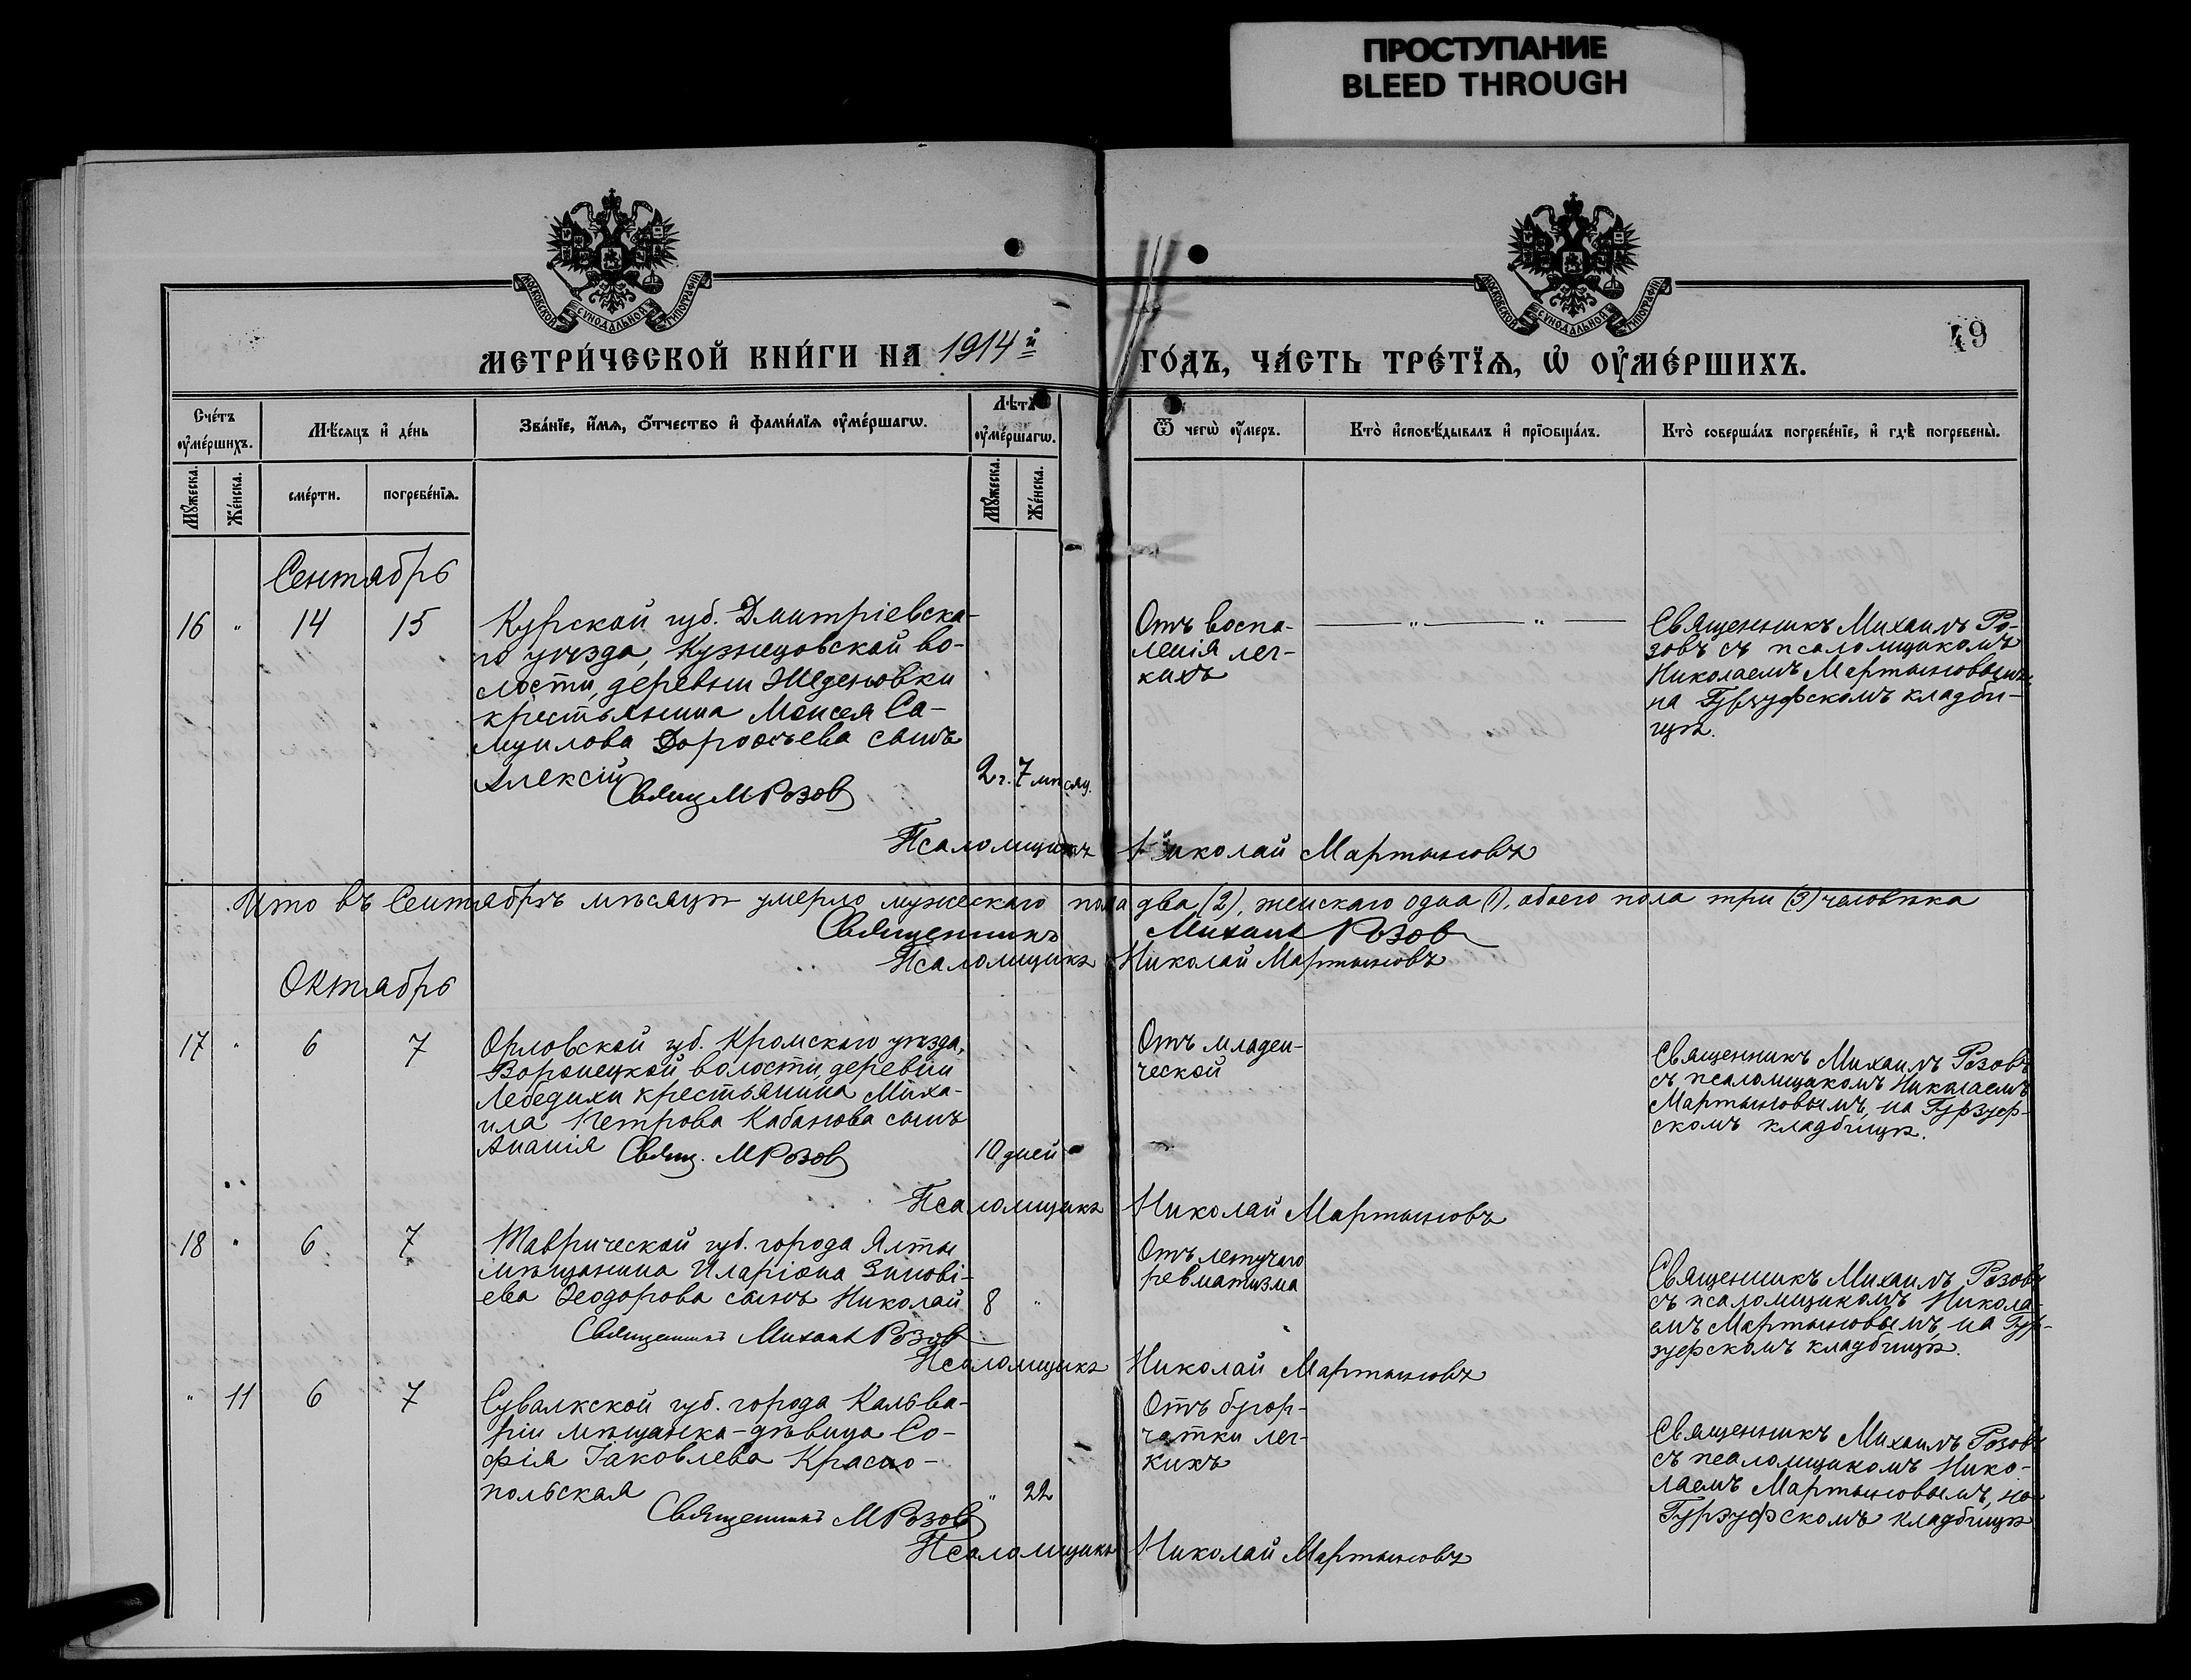 ПРОСТУПАНИЕ
BLEED THROUGH
МОСКОВСКОЙ СѴНОДАЛЬНОЙ ТИПОГРАФІИ
МОСКОВСКОЙ СѴНОДАЛЬНОЙ ТИПОГРАФІИ
49
МЕТРИ́ЧЕСКОЙ КНИ́ГИ НА 1914й ГО́ДЪ, ЧА́СТЬ ТРЕ́ТЇѦ, Ѡ҆ ОУ҆МЕ́РШИХЪ.
Сче́тъ оу҆ме́ршихъ.
Мѣ́сяцъ и҆ де́нь
Зва́нїе, и҆́мѧ, ѻ҆́тчество и҆ фами́лїѧ оу҆ме́ршагѡ.
Лѣ́та оу҆ме́ршагѡ.
Ѿ чегѡ̀ оу҆́меръ.
Кто̀ и҆сповѣ́дывалъ и҆ прїѡбща́лъ.
Кто̀ соверша́лъ погребе́нїе, и҆ гдѣ̀ погребены̀.
Мꙋ́жеска.
Же́нска.
сме́рти.
погребе́нїѧ.
Мꙋ́жеска.
Же́нска.
Сентябрь
16 " 14 15
Курской губ. Дмитріевска-
го уѣзда, Кузнецовской во-
лости, деревни Жденовки
крестьянина Моисея Са-
муилова Дорофѣева сынъ
Алексій
2 г. 7 мѣсяц.
Свящ М Розов
Отъ воспа-
ленія лег-
кихъ
— " — " —
Священникъ Михаилъ Ро-
зовъ съ псаломщикомъ
Николаемъ Мартыновымъ,
на Гурзуфскомъ кладби-
щѣ.
Псаломщикъ Николай Мартыновъ
Итого въ Сентябрѣ мѣсяцѣ умерло мужескаго пола два (2), женскаго одна (1), обоего пола три (3) человѣка
Священникъ Михаилъ Розов
Псаломщикъ Николай Мартыновъ
Октябрь
17 " 6 7
Орловской губ. Кромскаго уѣзда,
Воронецкой волости, деревни
Лебедихи крестьянина Миха-
ила Петрова Кабанова сынъ
Ананія
10 дней
Свящ. М Розов
Отъ младен-
ческой
Священникъ Михаилъ Розовъ
съ псаломщикомъ Николаемъ
Мартыновымъ, на Гурзуф-
скомъ кладбищѣ.
Псаломщикъ Николай Мартыновъ
18 " 6 7
Таврической губ. города Ялты
мѣщанина Иларіона Зинові-
ева Ѳеодорова сынъ Николай
8 "
Священникъ Михаилъ Розов
Отъ летучаго
ревматизма
Священникъ Михаилъ Розовъ
съ псаломщикомъ Никола-
емъ Мартыновымъ, на Гур-
зуфскомъ кладбищѣ.
Псаломщикъ Николай Мартыновъ
" 11 6 7
Сувалкской губ. города Кальва-
ріи мѣщанка-дѣвица Со-
фія Іаковлева Красно-
польская
" 22
Священникъ М Розов
Отъ бугор-
чатки лег-
кихъ
Священникъ Михаилъ Розовъ
съ псаломщикомъ Нико-
лаемъ Мартыновымъ, на
Гурзуфскомъ кладбищѣ
Псаломщикъ Николай Мартыновъ